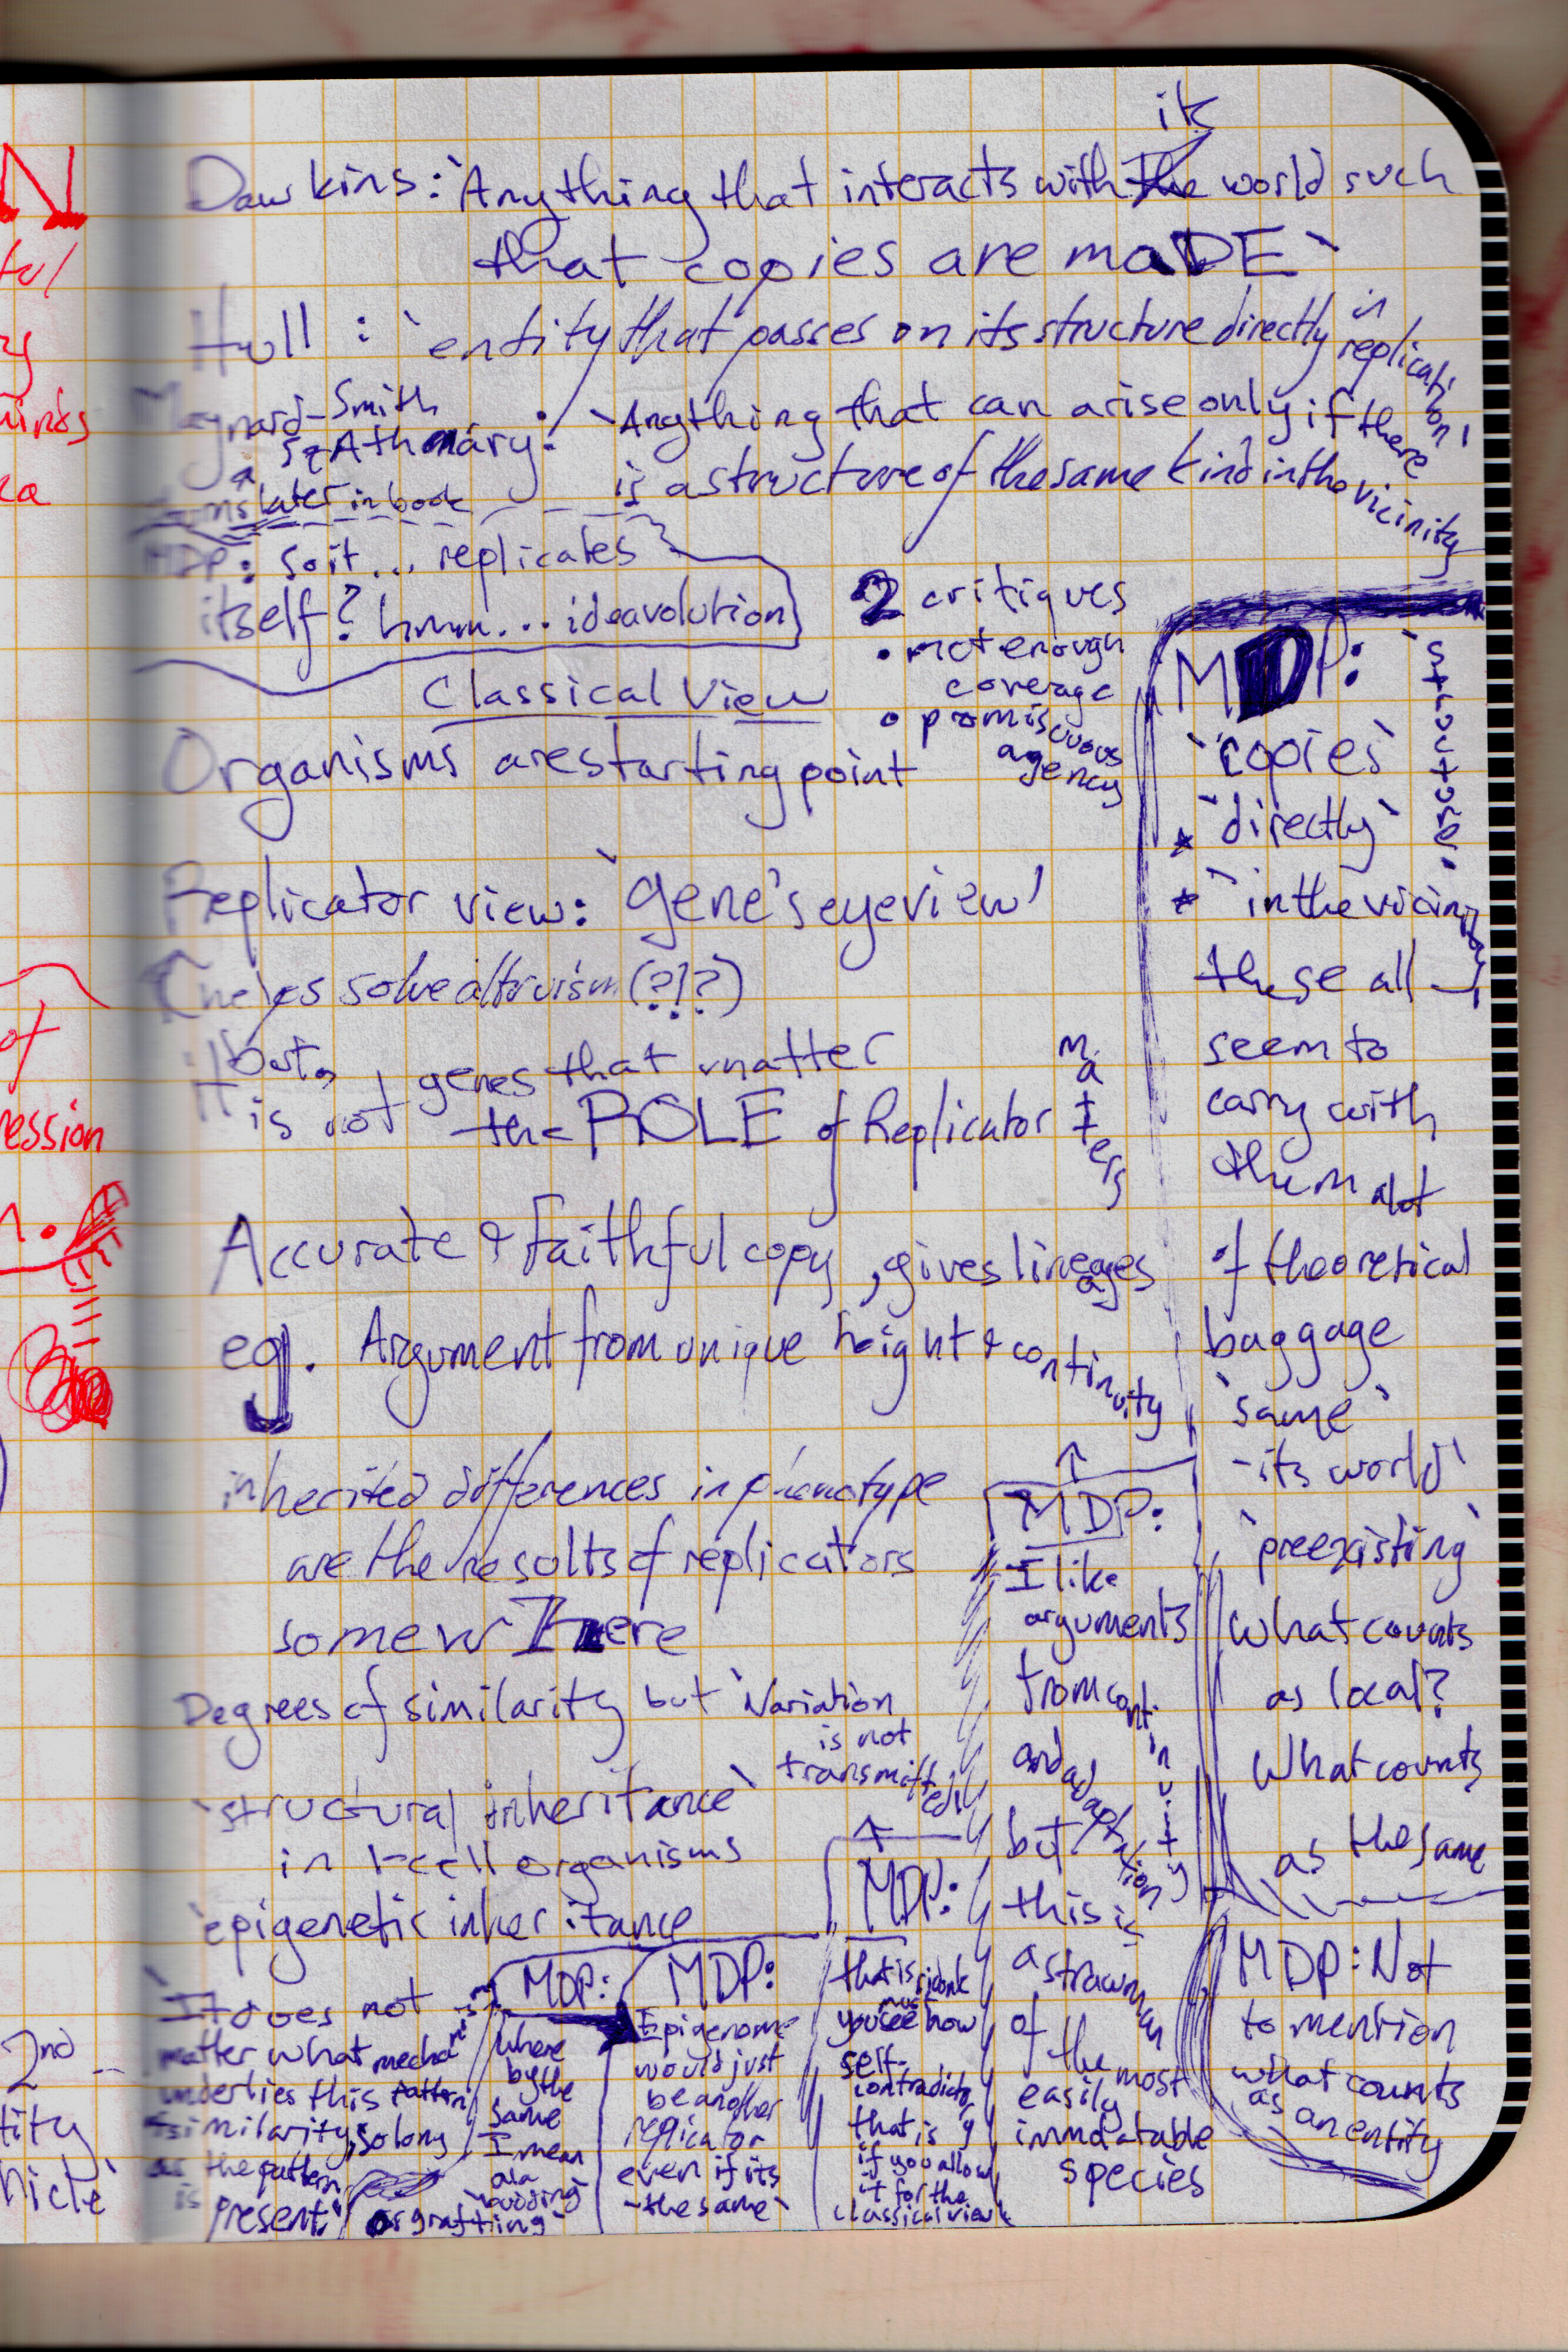 its
Dawkins: `Anything that interacts with the world such
that copies are maDE`
Hull : `entity that passes on its structure directly in replication'
Maynard-Smith
Szathmáry: `Anything that can arise only if there
is a structure of the same kind in the vicinity
later in book
MDP: so it... replicates
itself? hmm... ideavolution
2 critiques
• not enough
coverage
• promiscuous
agency
Classical View
Organisms are starting point
Replicator view: `gene's eye view'
(helps solve altruism (?!?)
but,
it is not genes that matter
the ROLE of Replicator matters
Accurate & Faithful copy, gives lineages
eg. Argument from unique height & continuity
inherited differences in phenotype
are the results of replicators
somewHere
Degrees of similarity but `Variation
is not
transmitted'
`structural inheritance`
in 1-cell organisms
`epigenetic inheritance
`It does not
matter what mechanism
underlies this pattern
similarity, so long
as the pattern
is present.'
MDP:
where
by the
same
I mean
ala
`budding`
or grafting`
MDP:
Epigenome
would just
be another
replicator
even if its
`the same`
MDP:
that is
must
you see how
self-
contradictory
that is
if you allow
it for the
classical view
MDP:
I like
arguments
from continuity
and adaptation
but this is
a strawman
of the most
easily
immutable
species
MDP: `structure.
`copies`
* `directly`
* `in the vicinity
these all
seem to
carry with
them alot
of theoretical
baggage
`same`
`its world'
`preexisting`
What counts
as local?
What counts
as the same
MDP: Not
to mention
what counts
as an entity
N
ession
of
2nd
tity
hicle`